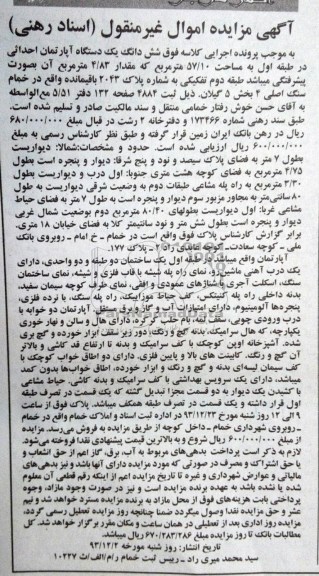 آگهی مزایده اموال غیرمنقول (اسناد رهنی)
به موجب پرونده اجرایی کلاسه فوق شش دانگ یک دستگاه آپارتمان احداثی
در طبقه اول به مساحت ۵۷/۱۰ مترمربع که مقدار ۴/۸۳ مترمربع آن بصورت
پیشرفتگی میباشد طبقه دوم تفکیکی به شماره پلاک ۲۰۴۳ باقیمانده واقع در خمام
سنگ اصلی ۴ بخش ۵ گیلان. ذیل ثبت ۴۸۸۴ صفحه ۱۳۲ دفتر ۵/۵۱ مع‌الواسطه
به آقای حسن خوش رفتار خمامی منتقل و سند مالکیت صادر و تسلیم شده است.
طبق سند رهنی شماره ۱۷۳۴۶۶ و دفترخانه ۲ رشت در قبال مبلغ ۶۸۰/۰۰۰/۰۰۰
ریال در رهن بانک ایران زمین قرار گرفته و طبق نظر کارشناس رسمی به مبلغ
۶۰۰/۰۰۰/۰۰۰ ریال ارزیابی شده است. حدود و مشخصات:شمالا: دیواریست
بطول ۷ متر به فضای پلاک سیصد و نود و پنج شرقا: دیوار و پنجره است بطول
۴/۷۵ مترمربع به فضای کوچه هشت متری جنوبا: اول درب و دیواریست بطول
۳/۳۰ مترمربع به راه پله مشاعی طبقات دوم به وضعیت شرقی دیواریست به طول
۸۰ سانتی‌متر به مجاور مزبور سوم دیوار و پنجره است به طول ۷ متر به فضای حیاط
مشاعی غربا: اول دیواریست بطولهای ۸۰/۴۰ مترمربع دوم بوضیت شمال غربی
دیوار و پنجره است بطول شش متر و نود سانتیمتر کلا به فضای خیابان ۱۸ متری.
برابر گزارش کارشناس پلاک فوق واقع است در خمام - خ امام - روبروی بانک
ملی - کوچه سعادت - کوچه عابدی راد ۲ - پلاک ۱۷۷.
آپارتمان واقع میباشد در طبقه اول یک ساختمان دو طبقه و دو واحدی، دارای
یک درب آهنی ماشین‌رو، نمای راه پله شیشه با قاب فلزی و شیشه، نمای ساختمان
سنگ، اسکلت آجری با شناژهای عمودی و افقی، نمای طرف کوچه سیمان سفید،
بدنه داخلی راه پله گچبنگی، کف حیاط موزاییک، راه پله سنگ، با نرده فلزی،
پنجره‌ها آلومینیوم، دارای امتیازات آب و گاز و برق مستقل. آپارتمان دو خوابه با
درب ورودی چوبی، سقف کاذب، بام حلب گیری کرده، دارای هال و سالن و نهار خوری
یکپارچه، که هال سرامیک، بدنه گچ و رنگ، دور زیر سقف ابزار خورده و گچ بری
شده. آشپزخانه اوپن کوچک با کف سرامیک و بدنه تا ارتفاع قد کاشی و بالاتر
آن گچ و رنگ. کابینت های بالا و پایین فلزی. دارای دو اطاق خواب کوچک با
کف سیمان لیسه‌ای بدنه و گچ و رنگ و ابزار خورده، اطاق خوابها بدون کمد
میباشد، دارای یک سرویس بهداشتی با کف سرامیک و بدنه کاشی. حیاط مشاعی
با کشیدن یک دیوار به دو قسمت مجزا تبدیل گشته که یک قسمت در تصرف طبقه
اول قرار داشته و یک قسمت در تصرف طبقه همکف میباشد. پلاک فوق از ساعت
۹ الی ۱۲ روز شنبه مورخ ۹۳/۱۲/۲۳ در اداره ثبت اسناد و املاک خمام واقع در خمام
- روبروی شهرداری خمام - داخل کوچه از طریق مزایده به فروش می‌رسد. مزایده
از مبلغ ۶۰۰/۰۰۰/۰۰۰ ریال شروع و به بالاترین قیمت پیشنهادی نقدا فروخته می‌شود.
لازم به ذکر است پرداخت بدهی‌های مربوط به آب، برق، گاز اعم از حق انشعاب و
یا حق اشتراک و مصرف در صورتی که مورد مزایده دارای آنها باشد و نیز بدهی‌های
مالیاتی و عوارض شهرداری و غیره تا تاریخ مزایده اعم از اینکه رقم قطعی آن معلوم
شده یا نشده باشد به عهده برنده مزایده است و نیز در صورت وجود مازاد، وجوه
پرداختی بابت هزینه‌های فوق از محل مازاد به برنده مزایده مسترد خواهد شد و نیم
عشر و حق مزایده نقدا وصول میگردد ضمنا چنانچه روز مزایده تعطیل رسمی گردد،
مزایده روز اداری بعد از تعطیلی در همان ساعت و مکان مقرر برگزار خواهد شد. کل
مطالبات بانک تا روز مزایده مبلغ ۶۷۰/۲۸۳/۲۸۶ ریال میباشد.
تاریخ انتشار: روز شنبه مورخه ۹۳/۱۲/۲
سید محمد میری راد - رییس ثبت خمام ر/م/الف/ث ۱۰۲۳۷